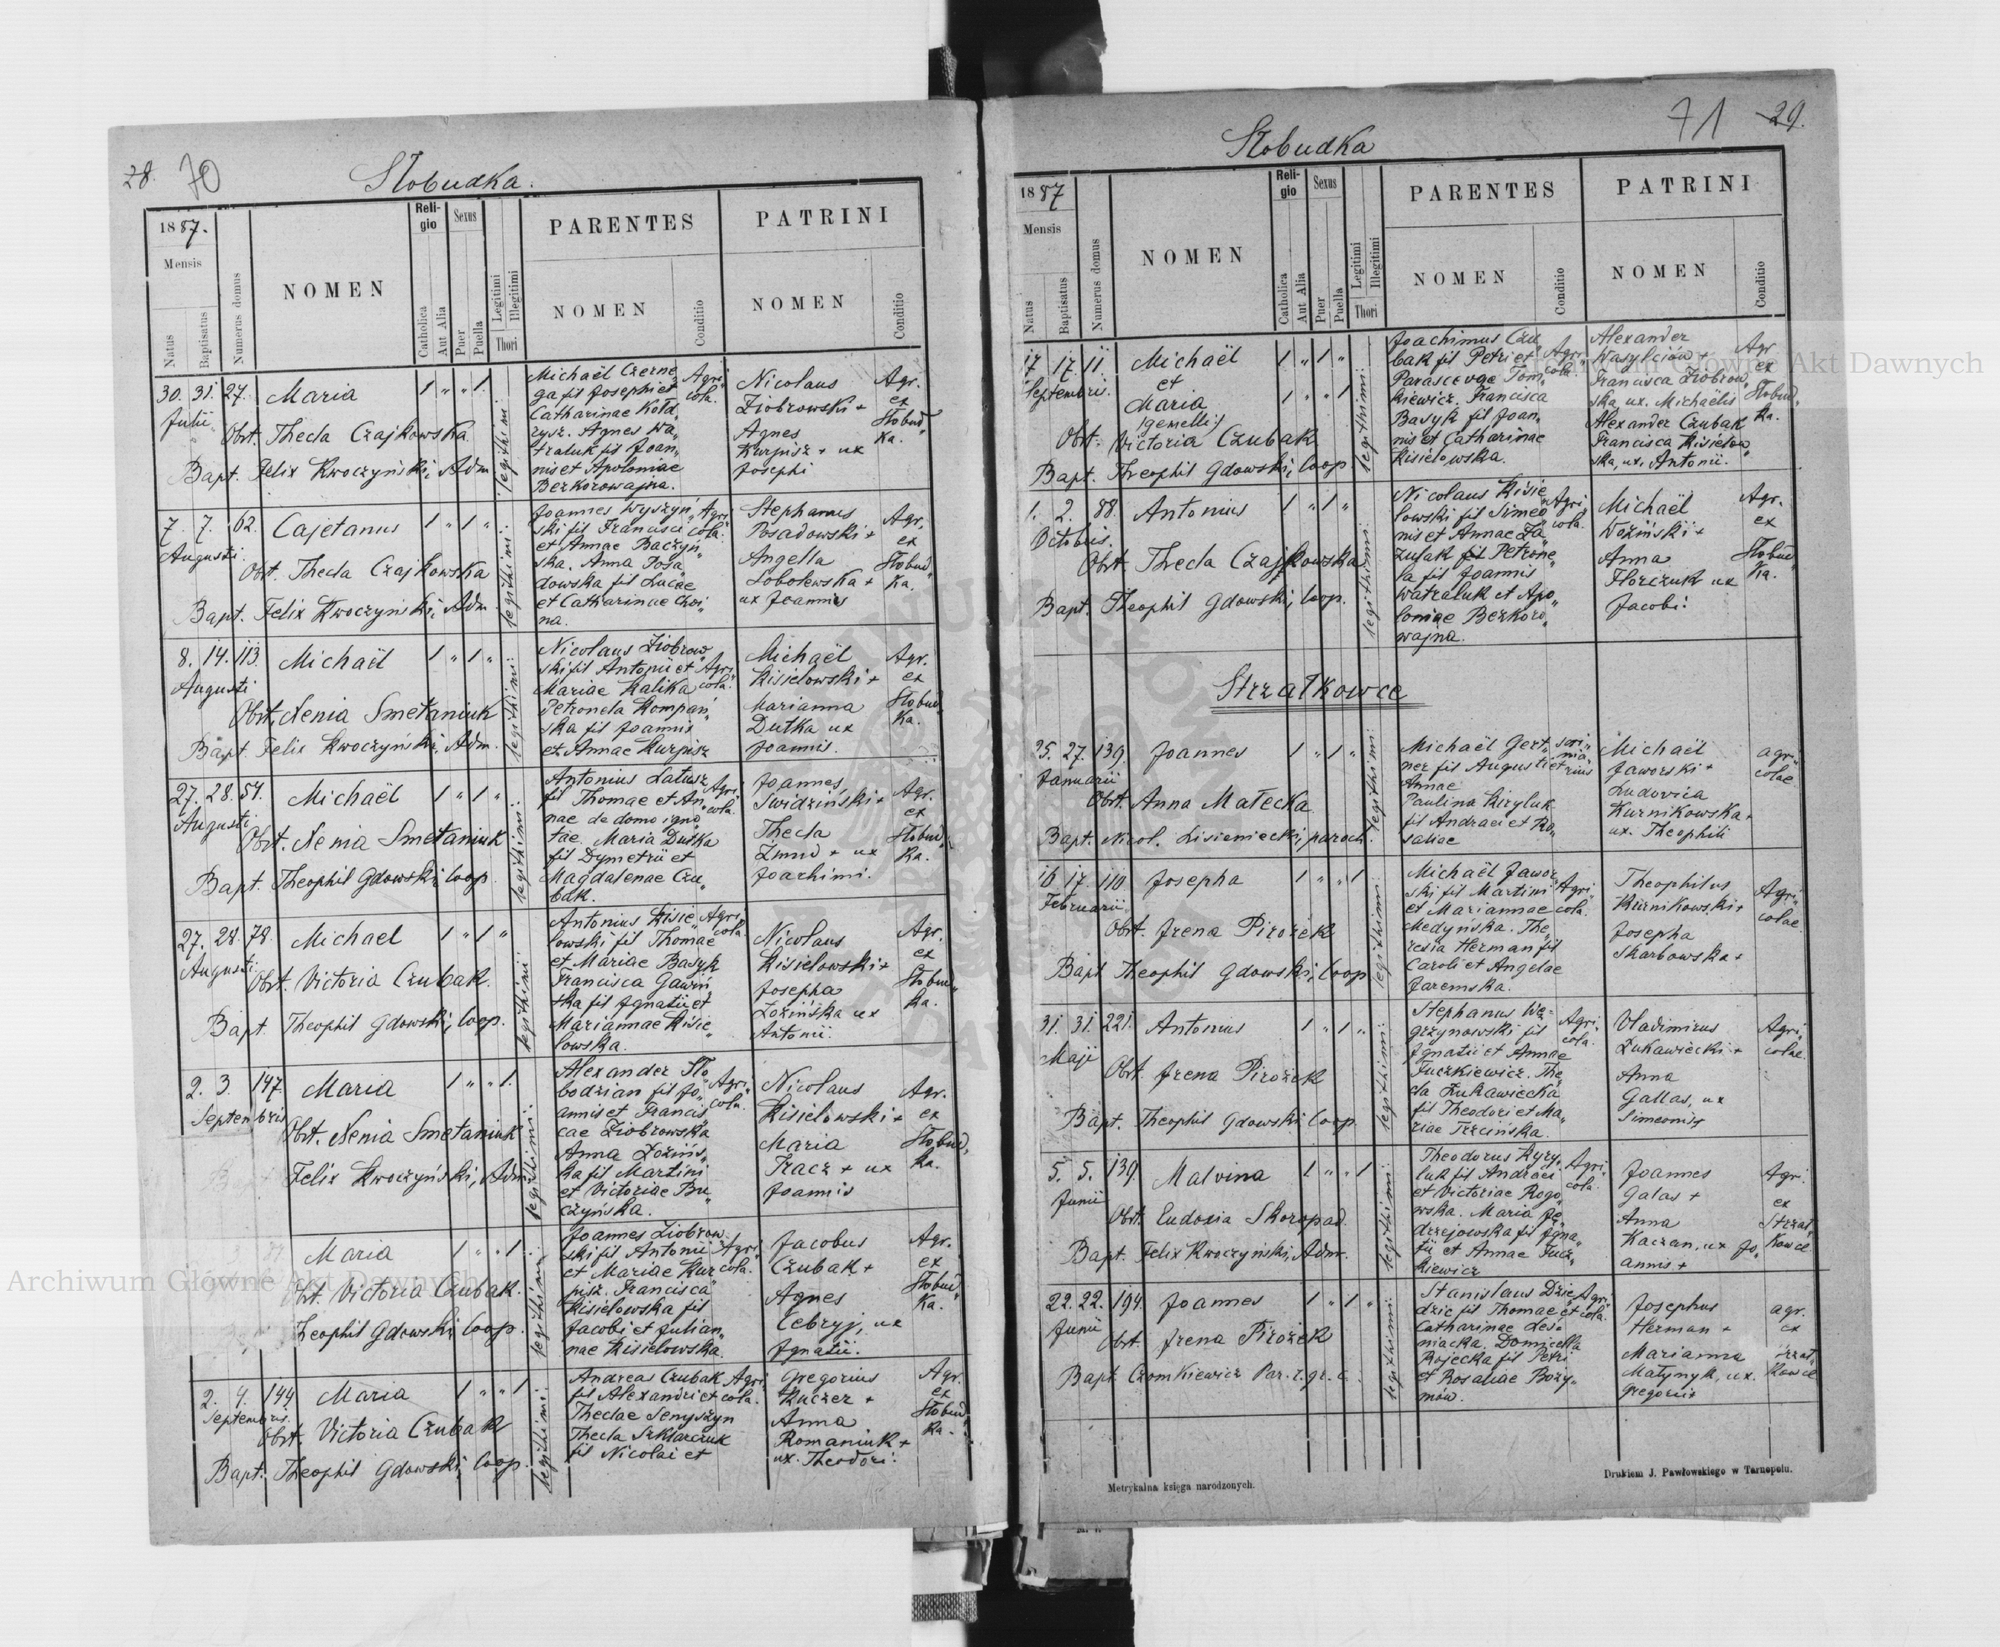 28. 70
Słobudka.
1887.
Mensis
Natus
Baptisatus
Numerus domus
NOMEN
Religio
Catholica
Aut Alia
Sexus
Puer
Puella
Thori
Legitimi
Illegitimi
PARENTES
NOMEN
Conditio
PATRINI
NOMEN
Conditio
30. 31. 27. Maria 1 " " 1.
Julii
Obst. Thecla Czajkowska
Bapt. Felix Kwoczyński, Adm.
legithimi
Michaël Czerne
ga fil Josephi et
Catharinae Kołd
rysz. Agnes Wa„
traluk fil Joan„
nis et Apoloniae
Bezkorowajna.
Agri„
cola.
Nicolaus
Ziobrowski +
Agnes
Kurpisz + ux
Josephi
Agr.
ex
Słobud„
ka.
7. 7. 62. Cajetanus 1 " 1 "
Augusti
Obst. Thecla Czajkowska
Bapt. Felix Kwoczyński, Adm.
legithimi
Joannes Wyszyń„
ski fil Francisci
et Annae Baczyń„
ska. Anna Posa„
dowska fil Lucae
et Catharinae Choi„
na.
Agri„
cola.
Stephanus
Posadowski +
Angella
Sobolewska +
ux Joannis
Agr.
ex
Słobud„
ka.
8. 14. 113. Michaël 1 " 1 "
Augusti
Obst. Nenia Smetaniuk
Bapt Felix Kwoczyński, Adm.
legithimi
Nicolaus Ziobrow„
ski fil Antonii et
Mariae Kalika
Petronela Kompań„
ska fil Joannis
et Annae Kurpisz
Agri„
cola.
Michaël
Kisielowski +
Marianna
Dutka ux
Joannis.
Agr.
ex
Słobud„
ka.
27. 28. 54. Michaël 1 " 1 "
Augusti
Obst. Nenia Smetaniuk
Bapt. Theophil Gdowski, Coop.
legithimi
Antonius Latusz
fil Thomae et An„
nae de domo igno
tae. Maria Dutka
fil Dymetrii et
Magdalenae Czu„
bak.
Agri„
cola.
Joannes
Swidziński +
Thecla
Zmud + ux
Joachimi.
Agr.
ex
Słobud„
ka.
27. 28. 78. Michael 1 " 1 "
Augusti
Obst. Victoria Czubak.
Bapt Theophil Gdowski, Coop.
legithimi
Antonius Kisie„
lowski fil Thomae
et Mariae Basyk
Francisca Gawin
ska fil Ignatii et
Mariannae Kisie„
lowska.
Agri„
cola.
Nicolaus
Kisielowski +
Josepha
Łozińska ux
Antonii.
Agr.
ex
Słobud„
ka.
2. 3. 147. Maria 1 " " 1.
Septembris
Obst. Nenia Smetaniuk
Felix Kwoczyński, Adm.
legithimi
Alexander Sło„
bodzian fil Jo„
annis et Francis„
cae Ziobrowska
Anna Łozińs„
ka fil Martini
et Victoriae Bu„
czyńska.
Agri„
cola.
Nicolaus
Kisielowski +
Maria
Tracz + ux
Joannis
Agr.
ex
Słobud„
ka.
Maria 1 " " 1.
Obst. Victoria Czubak.
Theophil Gdowski, Coop.
legithimi
Joannes Ziobrow„
ski fil Antonii
et Mariae Kur
pisz. Francisca
Kisielowska fil
Jacobi et Julian„
nae Kisielowska.
Agri„
cola.
Jacobus
Czubak +
Agnes
Cebryj, ux
Ignatii.
Agr.
ex
Słobud„
ka.
2. 4. 144 Maria 1 " " 1.
Septembris.
Obst. Victoria Czubak
Bapt. Theophil Gdowski, Coop.
legithimi
Andreas Czubak
fil Alexandri et
Theclae Senyszyn
Thecla Szklarczuk
fil Nicolai et
Agri„
cola.
Gregorius
Kuczer +
Anna
Romaniuk +
ux. Theodori.
Agr.
ex
Słobud„
ka.
71 29.
Słobudka
1887
Mensis
Natus
Baptisatus
Numerus domus
NOMEN
Religio
Catholica
Aut Alia
Sexus
Puer
Puella
Thori
Legitimi
Illegitimi
PARENTES
NOMEN
Conditio
PATRINI
NOMEN
Conditio
17 17 11. Michaël 1 " 1 "
Septembris.
et
Maria 1 " " 1
(gemelli)
Obst. Victoria Czubak
Bapt. Theophil Gdowski, Coop
legithimi
Joachimus Czu
bak fil Petri et
Parascevae Tom„
kiewicz. Francisca
Basyk fil Joan„
nis et Catharinae
Kisielowska.
Agri„
cola.
Alexander
Wasylciów +
Francisca Ziobrow„
ska, ux. Michaelis
Alexander Czubak
Francisca Kisielow„
ska, ux. Antonii.
Agr
ex
Słobud„
ka.
1. 2. 88. Antonius 1 " 1 "
Octobris.
Obst. Thecla Czajkowska
Bapt. Theophil Gdowski, Coop.
legithimi
Nicolaus Kisie„
lowski fil Simeo
nis et Annae Za„
zulak fil Petrone„
la fil Joannis
Watraluk et Apo„
loniae Bezkoro„
wajna.
Agri„
cola.
Michaël
Woźiński +
Anna
Florczuk ux
Jacobi.
Agr.
ex
Słobud„
ka.
Strzałkowce
25. 27. 139. Joannes 1 " 1 "
Januarii
Obst. Anna Małecka
Bapt. Nicol. Lisieniecki, paroch.
legithimi
Michaël Gert„
ner fil Augusti et
Annae
Paulina Kiryluk
fil Andraei et Ro„
saliae
Michaël
Jaworski +
Ludovica
Kurnikowska +
ux. Theophili
agri„
colae
16 17. 110 Josepha 1 " " 1
Februarii
Obst. Irena Pirożek
Bapt Theophil Gdowski, Coop
legithimi
Michaël Jawor„
ski fil Martini
et Mariannae
Medyńska. The„
resia Herman fil
Caroli et Angelae
Jaremska.
Agri„
cola.
Theophilus
Kurnikowski +
Josepha
Skarbowska +
Agri„
colae
31. 31. 221. Antonius 1 " 1 "
Maji
Obst. Irena Pirożek
Bapt. Theophil Gdowski Coop.
legithimi
Stephanus We„
grzynowski fil
Ignatii et Annae
Tuczkiewicz. The„
cla Żukawiecka
fil Theodori et Ma„
riae Trzcińska.
Agri„
cola.
Vladimirus
Żukawiecki +
Anna
Gallas, ux
Simeonis
Agri„
colae.
5. 5. 139. Malvina 1 " " 1
Junii
Obst. Eudoxia Skoropad.
Bapt. Felix Kwoczyński, Adm.
legithimi
Theodorus Kyry„
luk fil Andraei
et Victoriae Rogo„
wska. Maria Ję„
drzejowska fil Igna„
tii et Annae Tucz„
kiewicz
Agri„
cola.
Joannes
Galas +
Anna
Kaczan, ux Jo„
annis +
Agr.
ex
Strzał„
kowce
22. 22. 194. Joannes 1 " 1 "
Junii
Obst. Irena Pirożek
Bapt. Czomkiewicz Par. r. gr. c.
legithimi
Stanislaus Dzie„
dzic fil Thomae et
Catharinae Leś„
niacka. Domicella
Rojecka fil Petri
et Rosaliae Boży„
mów.
Agri„
cola.
Josephus
Herman +
Marianna
Matynyk, ux.
Gregorii
agr.
ex
Strzał„
kowce
Metrykalna księga narodzonych.
Drukiem J. Pawłowskiego w Tarnopolu.
Archiwum Główne Akt Dawnych
Archiwum Główne Akt Dawnych